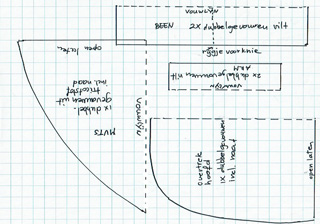 vouwlijn
BEEN 2X dubbelgevouwen vilt
rijgje voor knie
2x dubbel gevouwen vilt
ARM
vouwlijn
open laten
MUTS
1x dubbel
gevouwen uit
tricotstof
incl. naad
vouwlijn
overtrek
hoofd
1x dubbelgevouwen
incl. naad
open laten